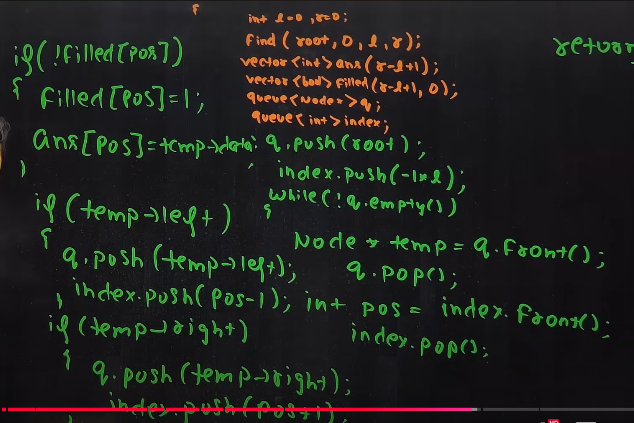 int l=0, r=0;
find(root, 0, l, r);
vector<int> ans(r-l+1);
vector<bool> filled(r-l+1, 0);
queue<Node*> q;
queue<int> index;
q.push(root);
index.push(-1*l);
while(!q.empty())
{
Node * temp = q.front();
q.pop();
int pos = index.front();
index.pop();
if(!filled[pos])
{
filled[pos]=1;
ans[pos]=temp->data;
}
if(temp->left)
{
q.push(temp->left);
index.push(pos-1);
}
if(temp->right)
{
q.push(temp->right);
index.push(pos+1);